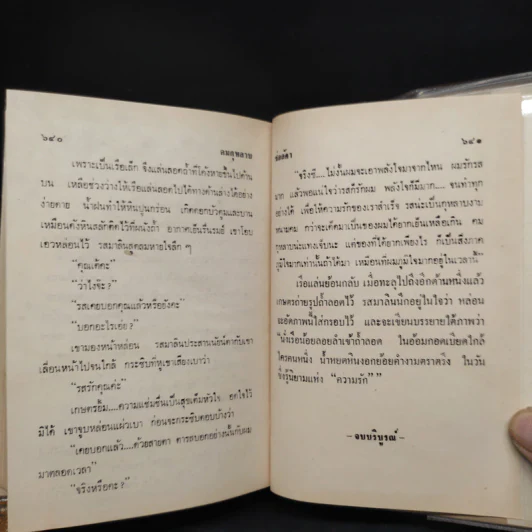 ๖๔๐
คมกุหลาบ
เพราะเป็นเรือเล็ก จึงแล่นลอดถ้ำที่โค้งหายขึ้นไปด้าน
บน เหลือช่วงว่างให้เรือแล่นลอดไปได้ทางด้านล่างได้อย่าง
ง่ายดาย น้ำฝนทำให้หินปูนกร่อน เกิดดอกบัวตูมและบาน
เหมือนดังหินสลักติดไว้ที่ผนังถ้ำ อากาศเย็นรื่นรมย์ เขาโอบ
เอวหล่อนไว้ รสมาลินสูดลมหายใจลึก ๆ
"คุณแค้คะ"
"ว่าไงจ๊ะ?"
"รสเคยบอกคุณแล้วหรือยังคะ"
"บอกอะไรเอ่ย?"
เขามองหน้าหล่อน รสมาลินประสานนัยน์ตากับเขา
เลื่อนหน้าไปจนใกล้ กระซิบที่หูเขาเสียงเบาว่า
"รสรักคุณค่ะ"
เกษตรยิ้ม....ความแช่มชื่นเป็นสุขเต็มหัวใจ อดใจไว้
มิได้ เขาจูบหล่อนแผ่วเบา ก่อนจะกระซิบตอบบ้างว่า
"เคยบอกแล้ว....ด้วยสายตา ตารสบอกอย่างนั้นกับผม
มาตลอดเวลา"
"จริงหรือคะ?"
๖๔๑
"จริงซี....ไม่งั้นผมจะเอาพลังใจมาจากไหน ผมรักรส
มาก แล้วพอแน่ใจว่ารสก็รักผม พลังใจก็มีมาก.... จนทำทุก
อย่างได้ เพื่อให้ความรักของเราสำเร็จ รสน่ะเป็นกุหลาบงาม
หนามคม กว่าจะเด็ดมาเป็นของผมได้ยากเย็นเหลือเกิน คม
กุหลาบน่ะแทงเจ็บนะ แต่ของที่ได้ยากเพียงไร ก็เป็นสิ่งภาค
ภูมิใจมากเท่านั้นถ้าได้มา เหมือนที่ผมภูมิใจมากอยู่ในเวลานี้"
เรือแล่นย้อนกลับ เมื่อทะลุไปถึงอีกด้านหนึ่งแล้ว
เกษตรถ่ายรูปถ้ำลอดไว้ รสมาลินนึกอยู่ในใจว่า หล่อน
จะอัดภาพนี้ใส่กรอบไว้ และจะเขียนบรรยายใต้ภาพว่า
นั่งเรือน้อยลอยลำเข้าถ้ำลอด ในอ้อมกอดเบียดใกล้
ใครคนหนึ่ง น้ำหยดที่นงอกย้อยคำงามตราตรึง ในวัน
ซึ่งรู้นิยามแห่ง "ความรัก" "
- จบบริบูรณ์ -